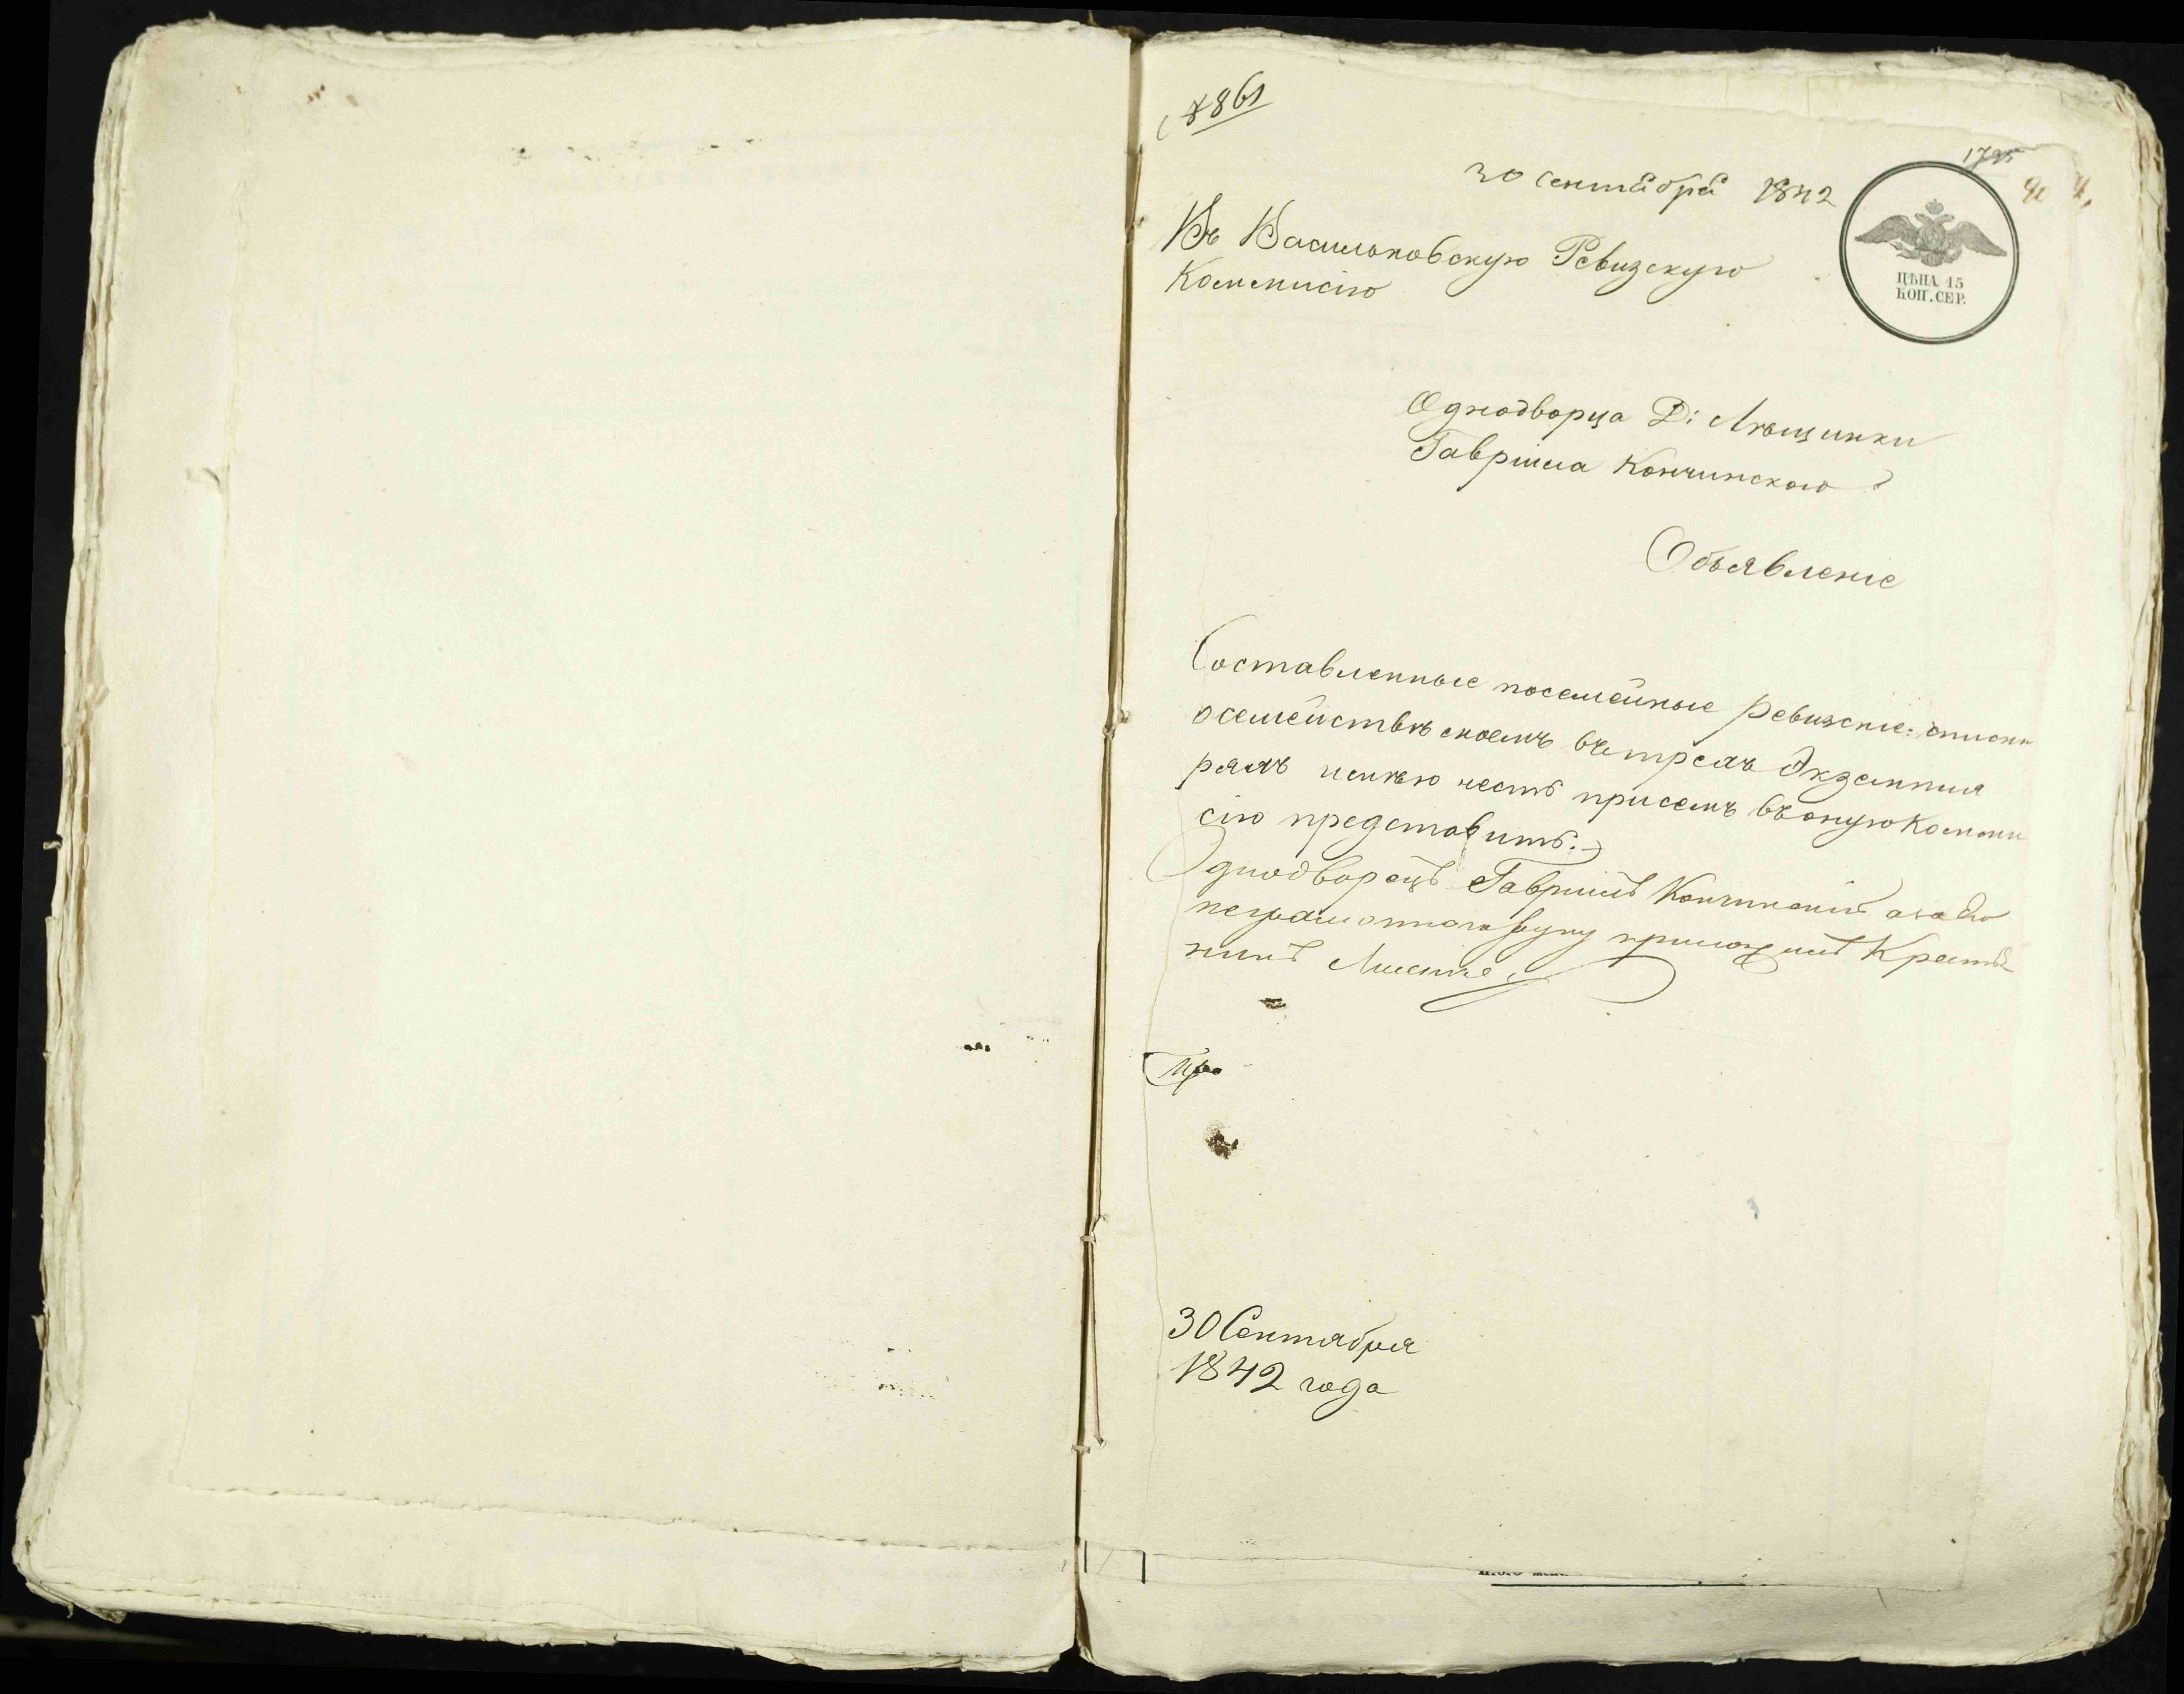 1861
1795
30 сентября 1842
ЦѢНА 15
КОП. СЕР.
Въ Васильковскую Ревизскую
Коммисію
Однодворца Д: Лѣщинки
Гавріила Кончинского
Объявленіе
Составленные посемейные Ревизскіе: списки
осемействѣ своемъ въ трехъ Экземпля
ряхъ имѣю честь присемъ въ оную Комми
сію представить.
Однодворецъ Гавріилъ Кончинскій а за его
неграмотного руку приложилъ Крестья
нинъ
30 Сентября
1842 года